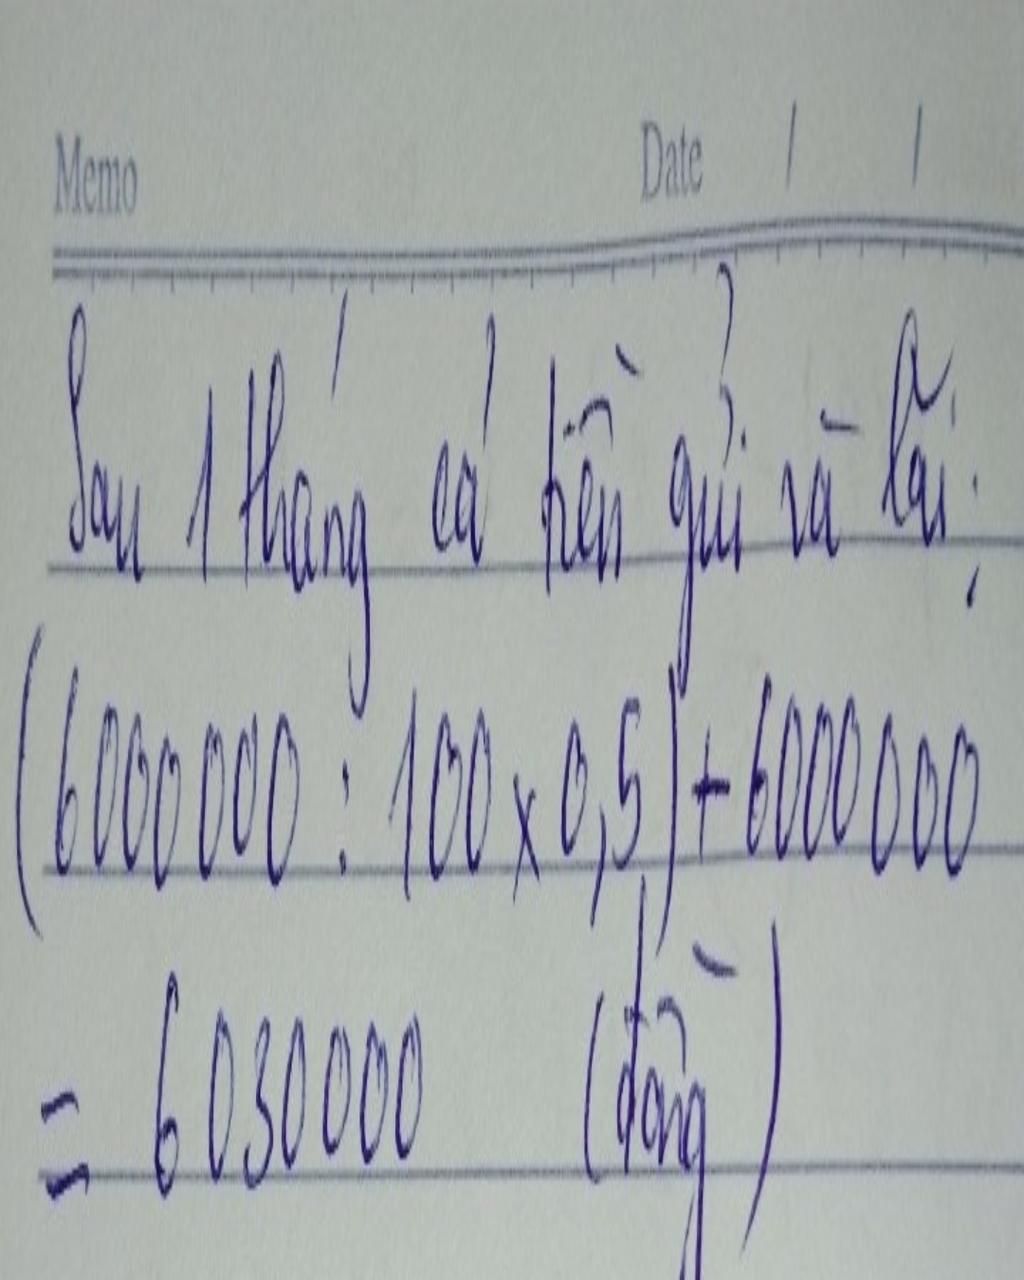 Memo Date / /
Sau 1 tháng cả tiền gửi và lãi:
(6000000 : 100 x 0,5) + 6000000
= 6030000 (đồng)